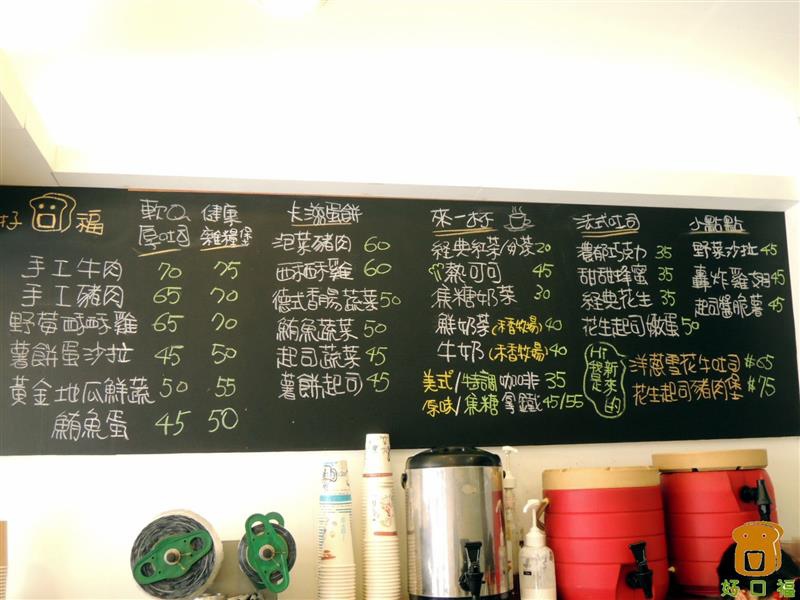 好口福
軟Q厚吐司
健康雜糧堡
手工牛肉 70 75
手工豬肉 65 70
野莓酥酥雞 65 70
薯餅蛋沙拉 45 50
黃金地瓜鮮蔬 50 55
鮪魚蛋 45 50
卡滋蛋餅
泡菜豬肉 60
酥酥雞 60
德式香腸蔬菜 50
鮪魚蔬菜 50
起司蔬菜 45
薯餅起司 45
來一杯
經典紅茶/奶茶 20
熱可可 45
焦糖奶茶 30
鮮奶茶(禾香牧場) 40
牛奶(禾香牧場) 40
美式/特調咖啡 35
原味/焦糖拿鐵 45/55
法式吐司
濃郁巧克力 35
甜甜蜂蜜 35
經典花生 35
花生起司嫩蛋 50
小點點
野菜沙拉 45
轟炸雞翅 45
起司醬脆薯 45
Hi 我是新來的
洋蔥雪花牛吐司 $65
花生起司豬肉堡 $75
好口福